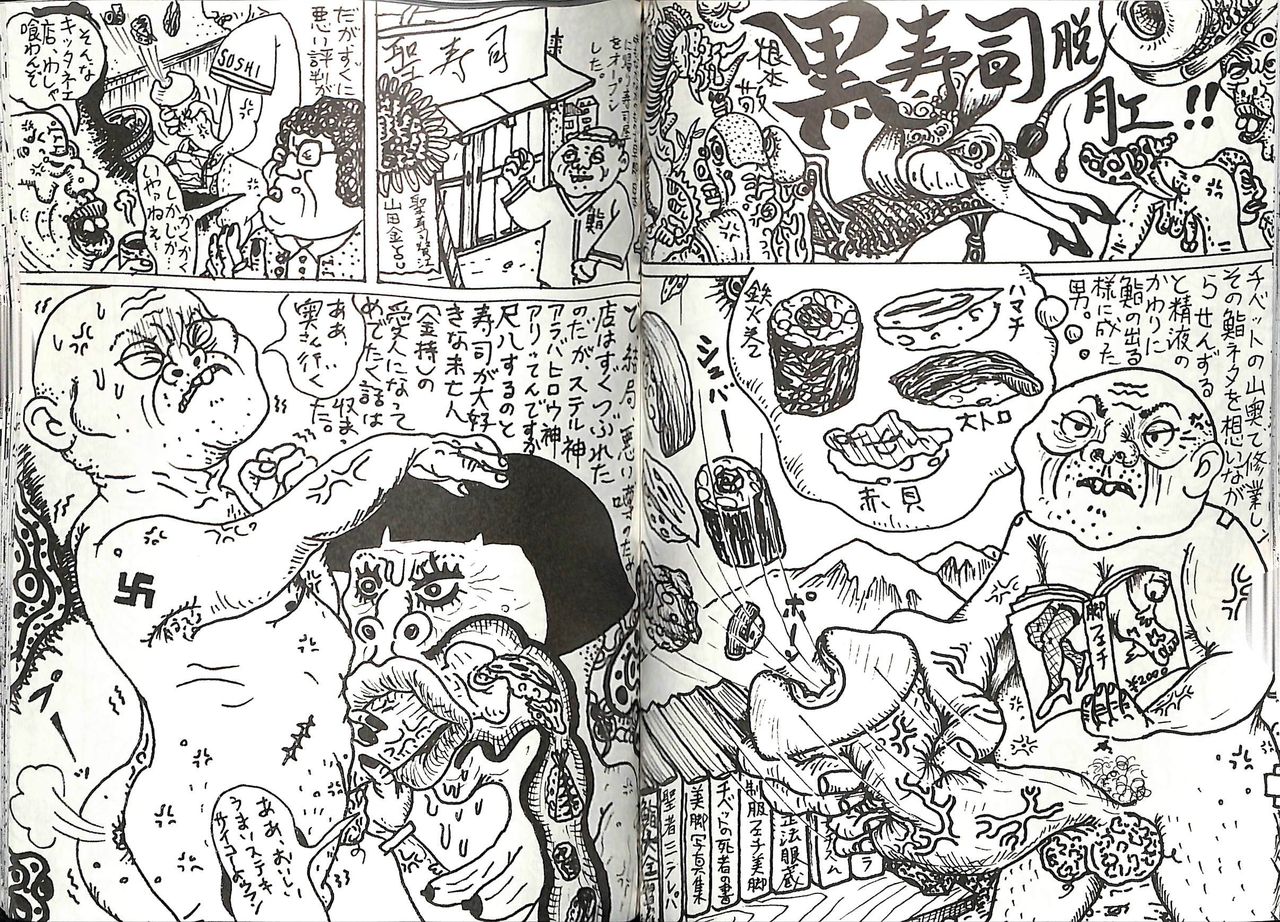 黒寿司
脱
肛!!
根本敬
チベットの山奥で修業し
その鮨ネタを想いなが
らせんずる
と精液の
かわりに
鮨の出る
様に成た
男。
ハマチ
鉄火巻
大トロ
赤貝
ジュバー
ポーン
脚フェチ
¥2000
正法眼蔵
制服フェチ美脚
チベットの死者の書
美脚写真集
聖者ミラレパ
鮨大全
をオープン
した。
聖寿司
鮨
聖寿司賛江
山田金
だがすぐに
悪い評判が
SUSHI
そんな
キッタネエ
店、わしゃ
喰わんぞ
いやねぇー
結局、悪い噂のため
店はすぐつぶれた
のだが、ステル神
アラバヒロウ神
アリってんですか
尺八するのと
寿司が大好
きな未亡人
(金持)の
愛人になって
めでたく話は
収まった。
ああ、
奥さん行く
卍
ペー
ああ、おいしい
うまい、ステキ
サイコーよ、ウフン